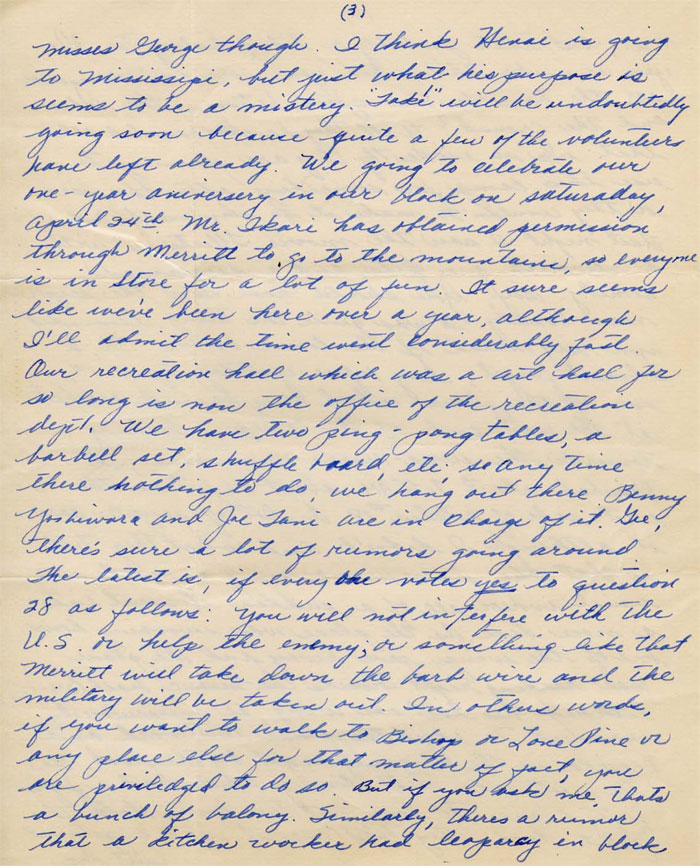 (3)
misses George though. I think Henai is going
to Mississipi, but just what his purpose is
seems to be a mistery. "Take" will be undoubtedly
going soon because quite a few of the volunteers
have left already. We going to celebrate our
one-year aniversery in our block on saturaday,
April 24th. Mr. Ikari has obtained permission
through Merritt to go to the mountains, so everyone
is in store for a lot of fun. It sure seems
like we've been here over a year, although
I'll admit the time went considerably fast.
Our recreation hall which was a art hall for
so long is now the office of the recreation
dept. We have two ping-pong tables, a
barbell set, shuffle board, etc; so any time
there nothing to do, we hang out there. Benny
Yoshiwara and Joe Tani are in charge of it. Gee,
there's sure a lot of rumors going around.
The latest is, if every one votes yes to question
28 as follows: You will not interfere with the
U.S. or help the enemy; or something like that
Merritt will take down the barb wire and the
military will be taken out. In other words,
if you want to walk to Bishop or Lone Pine or
any place else for that matter of fact, you
are priviledged to do so. But if you ask me, thats
a bunch of balony. Similarly, theres a rumor
that a kitchen worker had leaparcy in block